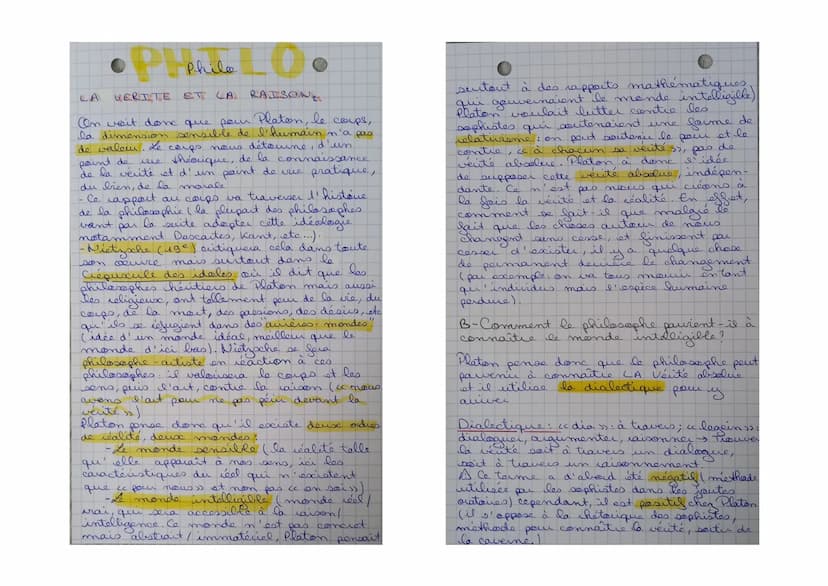 PHILO
Philo
LA VERITE ET LA RAISON.
(On voit donc que pour Platon, le corps,
la dimension sensible de l'humain n'a pas
de valeur. Le corps nous détourne, d'un
point de vue théorique, de la connaissance
de la vérité et d'un point de vue pratique,
du bien, de la morale
- Ce rapport au corps va traverser l'histoire
de la philosophie (la plupart des philosophes
vont par la suite adopter cette idéologie
notamment Descartes, Kant, etc...).
- Nietzsche (19e) critiquera cela dans toute
son œuvre, mais surtout dans le
Crépuscule des idoles où il dit que les
philosophes héritiers de Platon mais aussi
les religieux, ont tellement peur de la vie, du
corps, de la mort, des passions, des désirs, etc
qu'ils se réfugient dans des "arrières-mondes"
(idée d'un monde idéal, meilleur que le
monde d'ici bas). Nietzsche se fera
philosophe-artiste en réaction à ces
philosophes : il valorisera le corps et les
sens, puis l'art, contre la raison (« nous
avons l'art pour ne pas périr devant la
vérité »)
Platon pense donc qu'il existe deux ordres
de réalité, deux mondes :
- Le monde sensible (la réalité telle
qu'elle apparaît à nos sens, ici les
caractéristiques du réel qui n'existent
que « pour nous » et non pas « en soi »)
- Le monde intelligible (monde réel/
vrai, qui sera accessible à la raison/
intelligence. Ce monde n'est pas concret
mais abstrait/immatériel, Platon pensait
surtout à des rapports mathématiques
qui gouvernaient le monde intelligible)
Platon voulait lutter contre les
sophistes qui soutenaient une forme de
relativisme : on peut soutenir le pour et le
contre, « à chacun sa vérité », pas de
vérité absolue. Platon à donc l'idée
de supposer cette vérité absolue, indépen-
dante. Ce n'est pas nous qui créons à
la fois la vérité et la réalité. En effet,
comment se fait-il que malgré le
fait que les choses autour de nous
changent sans cesse, et finissent par
cesser d'exister, il y a quelque chose
de permanent derrière le changement
(par exemple on va tous mourir en tant
qu'individus mais l'espèce humaine
perdure).
B-Comment le philosophe parvient-il à
connaître le monde intelligible ?
Platon pense donc que le philosophe peut
parvenir à connaître LA Vérité absolue
et il utilise la dialectique pour y
arriver
Dialectique : « dia » : à travers ; « legein » :
dialoguer, argumenter, raisonner → Trouver
la vérité soit à travers un dialogue,
soit à travers un raisonnement.
⚠ Ce terme a d'abord été négatif (méthode
utilisée par les sophistes dans les joutes
oratoires) Cependant, il est positif chez Platon
(il s'oppose à la rhétorique des sophistes,
méthode pour connaître la vérité, sortir de
la caverne.)